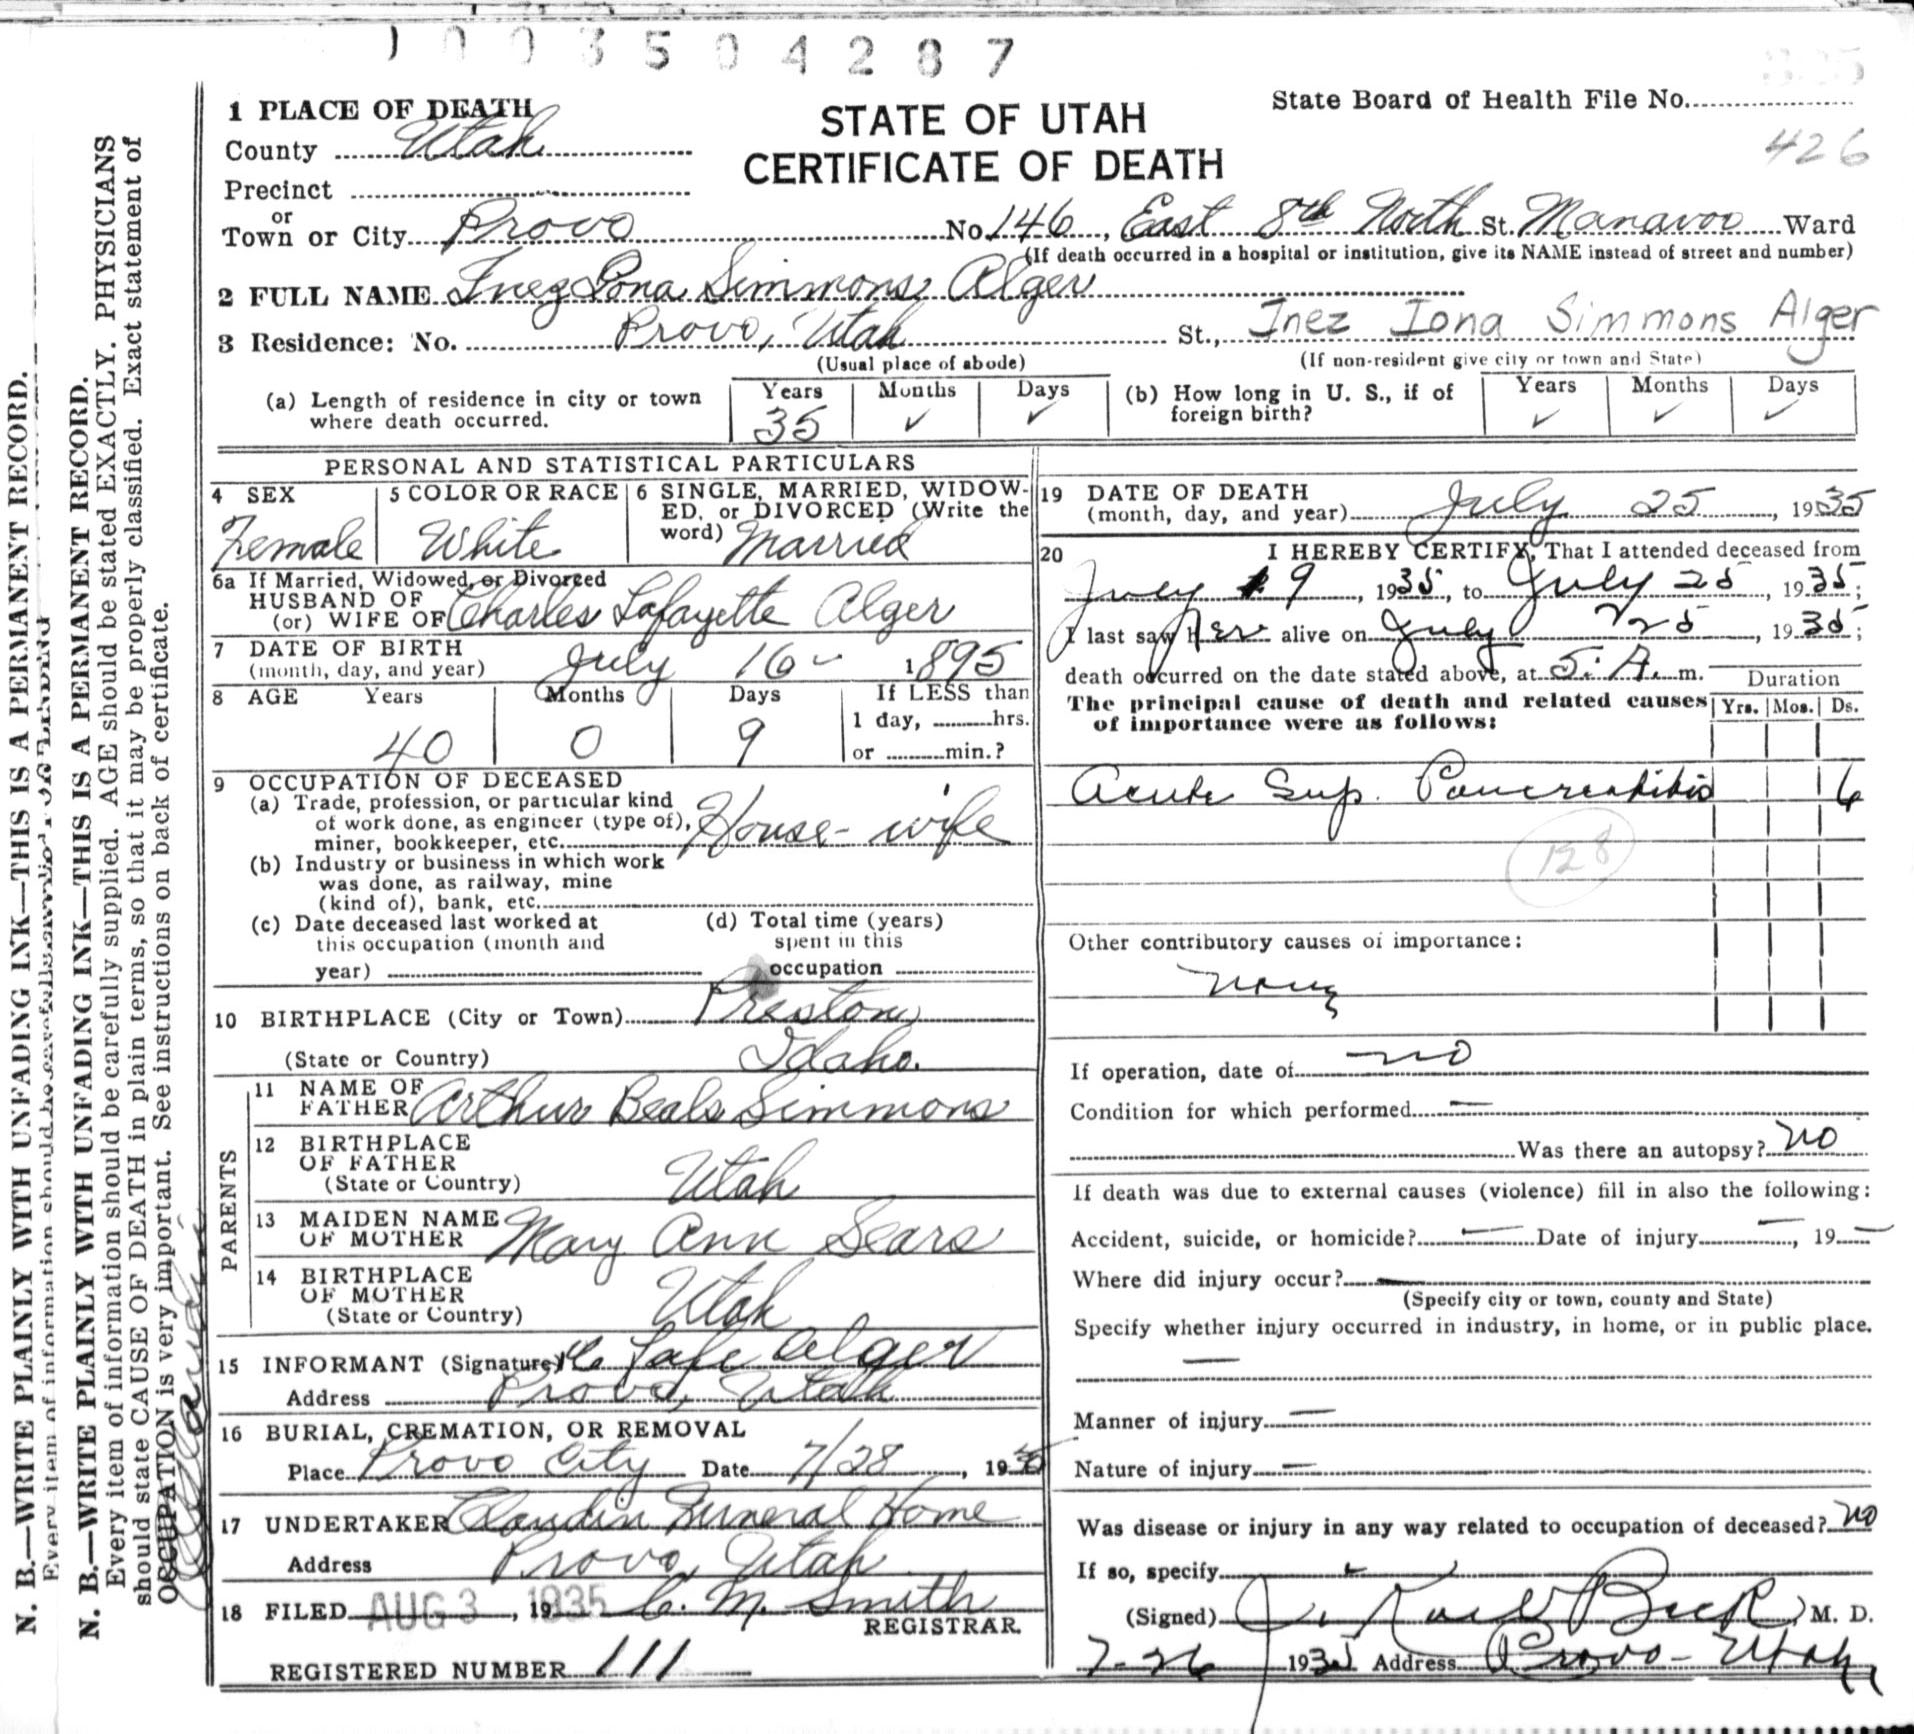 1003504287
1 PLACE OF DEATH
STATE OF UTAH
CERTIFICATE OF DEATH
State Board of Health File No.
426
County Utah
Precinct
or
Town or City Provo No. 146, East 8th North St. Manavoo Ward
(If death occurred in a hospital or institution, give its NAME instead of street and number)
2 FULL NAME Inez Iona Simmons Alger
3 Residence: No. Provo, Utah St., Inez Iona Simmons Alger
(Usual place of abode) (If non-resident give city or town and State)
(a) Length of residence in city or town where death occurred. Years 35 Months ✓ Days ✓
(b) How long in U. S., if of foreign birth? Years ✓ Months ✓ Days ✓
PERSONAL AND STATISTICAL PARTICULARS
4 SEX Female
5 COLOR OR RACE White
6 SINGLE, MARRIED, WIDOW-
ED, or DIVORCED (Write the
word) Married
6a If Married, Widowed, or Divorced
HUSBAND OF
(or) WIFE OF Charles Lafayette Alger
7 DATE OF BIRTH
(month, day, and year) July 16 - 1895
8 AGE Years Months Days If LESS than
1 day, hrs.
40 0 9 or min.?
9 OCCUPATION OF DECEASED
(a) Trade, profession, or particular kind
of work done, as engineer (type of),
miner, bookkeeper, etc. House-wife
(b) Industry or business in which work
was done, as railway, mine
(kind of), bank, etc.
(c) Date deceased last worked at
this occupation (month and
year)
(d) Total time (years)
spent in this
occupation
10 BIRTHPLACE (City or Town) Preston
(State or Country) Idaho.
PARENTS
11 NAME OF
FATHER Arthur Beals Simmons
12 BIRTHPLACE
OF FATHER
(State or Country) Utah
13 MAIDEN NAME
OF MOTHER Mary Ann Sears
14 BIRTHPLACE
OF MOTHER
(State or Country) Utah
15 INFORMANT (Signature) C. Lafe Alger
Address Provo, Utah
16 BURIAL, CREMATION, OR REMOVAL
Place Provo City Date 7/28, 1935
17 UNDERTAKER Claudin Funeral Home
Address Provo, Utah
18 FILED AUG 3, 19 1935 C. M. Smith
REGISTRAR.
REGISTERED NUMBER 111
19 DATE OF DEATH
(month, day, and year) July 25, 1935
20 I HEREBY CERTIFY, That I attended deceased from
July 19, 1935, to July 25, 1935;
I last saw her alive on July 25, 1935;
death occurred on the date stated above, at 5. A. m.
Duration
The principal cause of death and related causes
of importance were as follows:
Yrs. Mos. Ds.
Acute Sup. Pancreatitis 6
128
Other contributory causes of importance:
None
If operation, date of no
Condition for which performed —
Was there an autopsy? no
If death was due to external causes (violence) fill in also the following:
Accident, suicide, or homicide? — Date of injury —, 19 —
Where did injury occur? —
(Specify city or town, county and State)
Specify whether injury occurred in industry, in home, or in public place.
—
Manner of injury —
Nature of injury —
Was disease or injury in any way related to occupation of deceased? no
If so, specify
(Signed) J. Karl Beck, M. D.
7-26 1935 Address Provo - Utah
N. B.—WRITE PLAINLY WITH UNFADING INK—THIS IS A PERMANENT RECORD.
Every item of information should be carefully supplied.
N. B.—WRITE PLAINLY WITH UNFADING INK—THIS IS A PERMANENT RECORD.
Every item of information should be carefully supplied. AGE should be stated EXACTLY. PHYSICIANS
should state CAUSE OF DEATH in plain terms, so that it may be properly classified. Exact statement of
OCCUPATION is very important. See instructions on back of certificate.